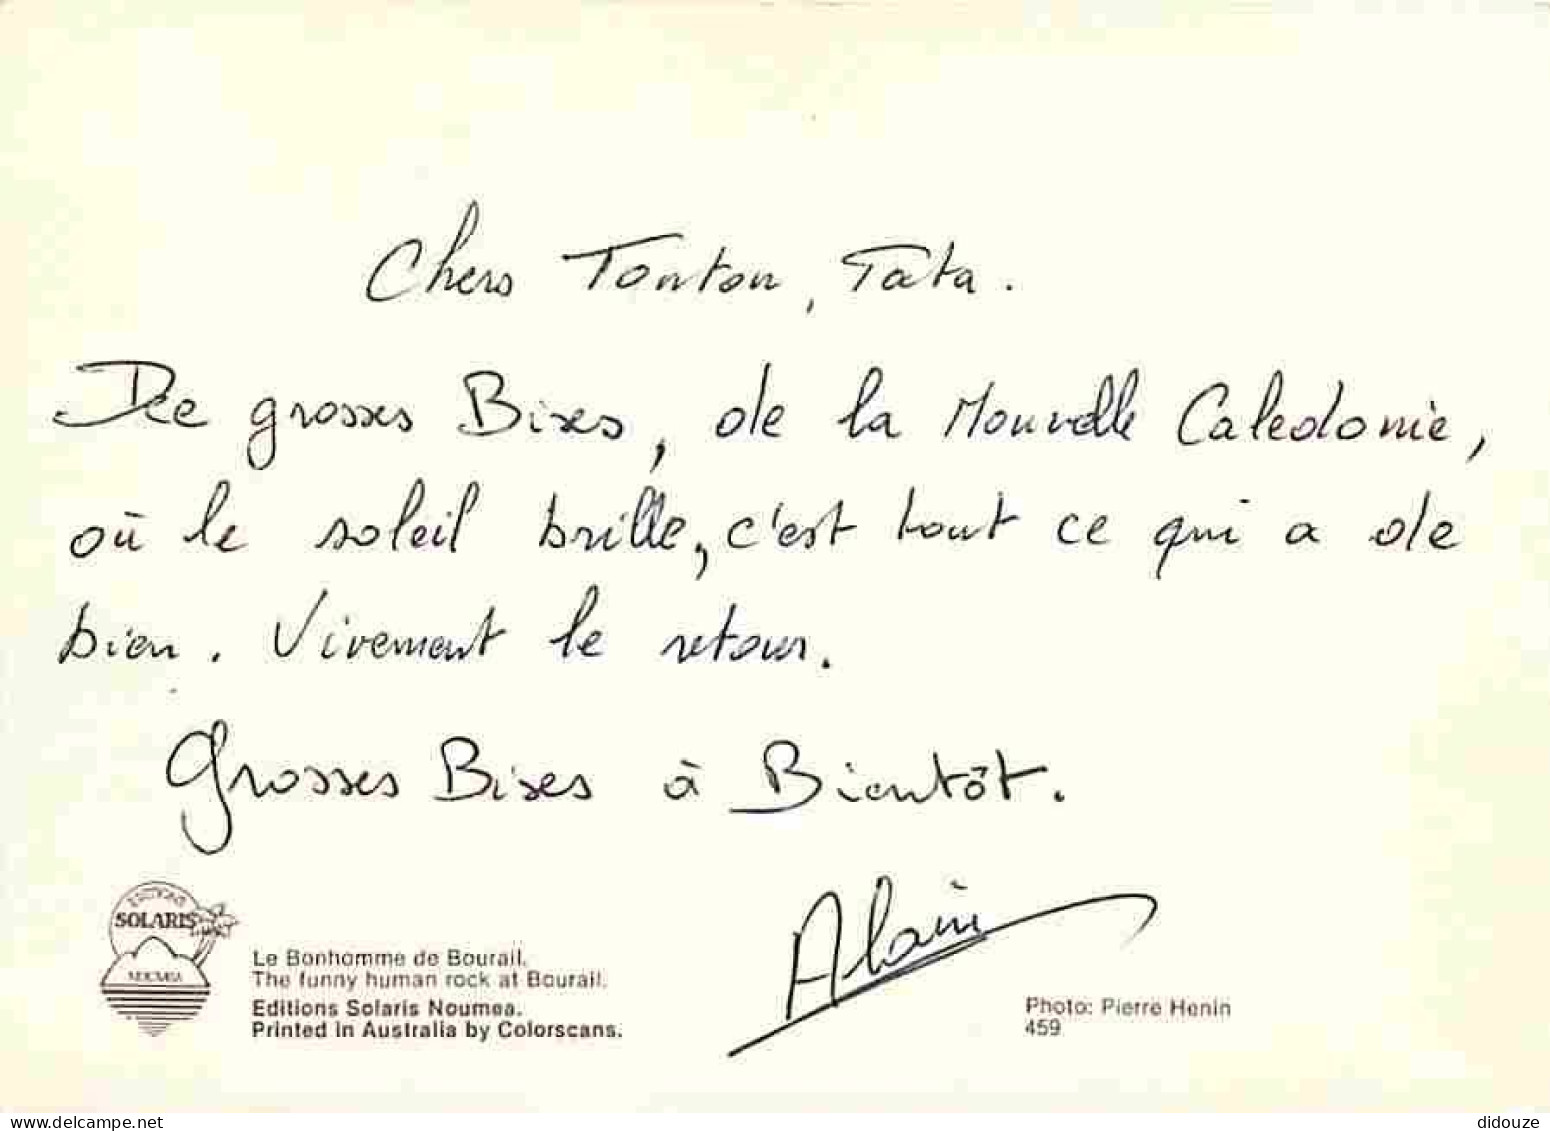 Chers Tonton, Tata.
De grosses Bises, de la Nouvelle Caledonie,
où le soleil brille, c'est tout ce qui a de
bien. Vivement le retour.
Grosses Bises à Bientôt.
Alain
EDITIONS
SOLARIS
NOUMEA
Le Bonhomme de Bourail.
The funny human rock at Bourail.
Editions Solaris Noumea.
Printed in Australia by Colorscans.
Photo: Pierre Henin
459
delcampe.net
didouze